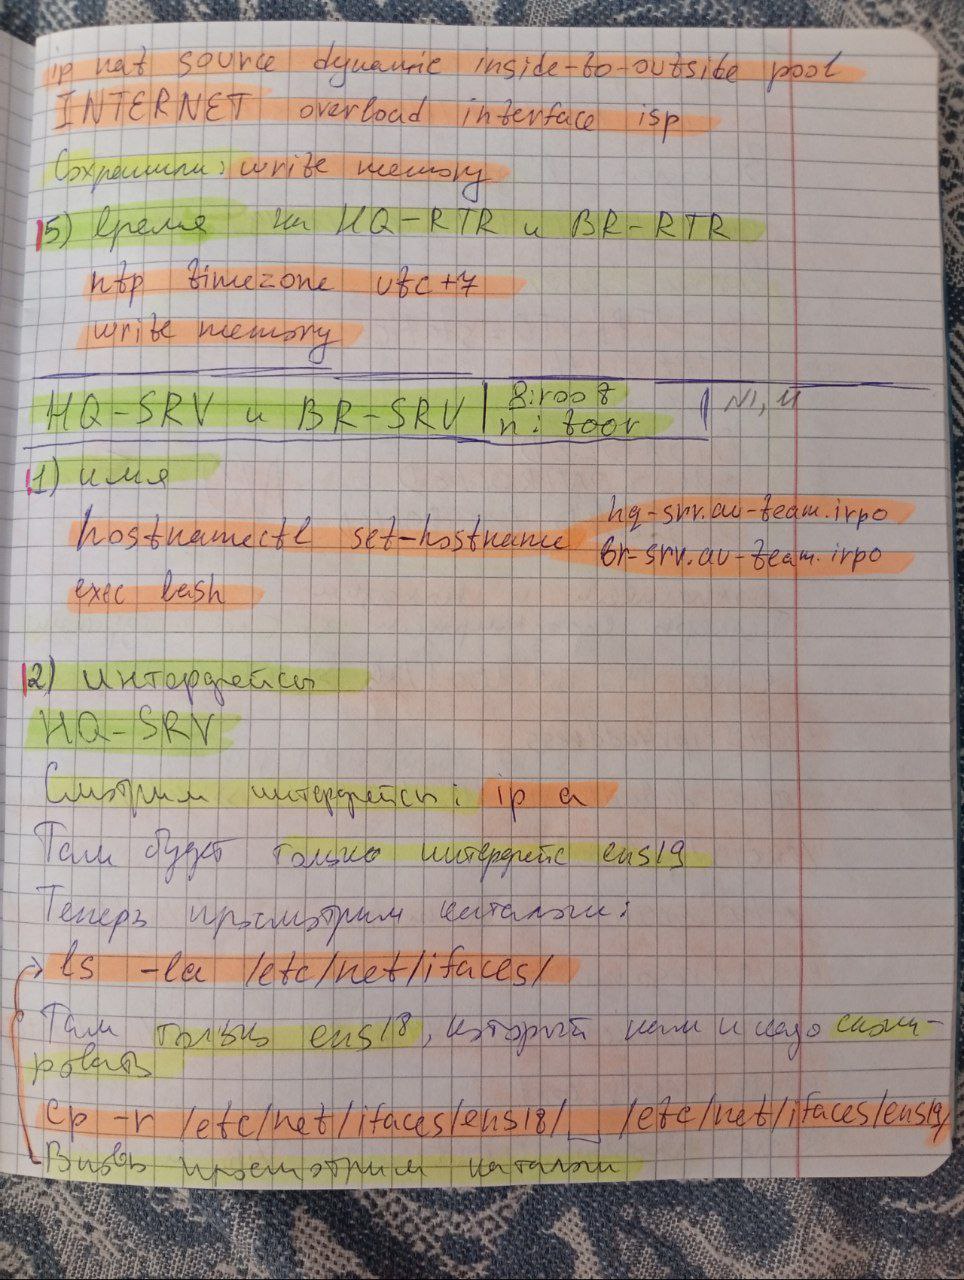 ip nat source dynamic inside-to-outsite pool
INTERNET overload interface isp
Сохранили: write memory
15) Время на HQ-RTR и BR-RTR
ntp timezone utc+7
write memory
HQ-SRV и BR-SRV
n: toor
1) имя
hostnamectl set-hostname
hq-srv.au-team.irpo
br-srv.au-team.irpo
exec bash
12) интерфейсы
HQ-SRV
Смотрим интерфейсы: ip a
Там будет только интерфейс ens19
Теперь просмотрим каталоги:
ls -la /etc/net/ifaces/
Там только ens18, который нам и надо скопи-
ровать
cp -r /etc/net/ifaces/ens18/ /etc/net/ifaces/ens19/
Вновь просмотрим каталоги